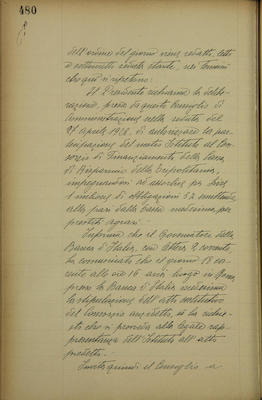 480
dell'ordine del giorno viene redatto, letto
e sottoscritto seduta stante, nei termini
che qui si riportano:
Il Presidente richiama la delibe-
razione, presa da questo Consiglio di
Amministrazione nella seduta del
27 Aprile 1928, di autorizzare la par-
tecipazione del nostro Istituto al Con-
sorzio di Finanziamento della Cassa
di Risparmio della Tripolitania,
impegnandosi ad assorbire per Lire
1 milione di obbligazioni 5% emettende
alla pari dalla Cassa medesima per
prestiti agrari.
Informa che il Governatore della
Banca d'Italia, con lettera 2 corrente,
ha comunicato che il giorno 18 cor-
rente alle ore 16 avrà luogo in Roma,
presso la Banca d'Italia
la stipulazione dell'atto costitutivo
del Consorzio anzidetto, ed ha richie-
sto che si provveda alla legale rap-
presentanza dell'Istituto all'atto
predetto.
Invita quindi il Consiglio a